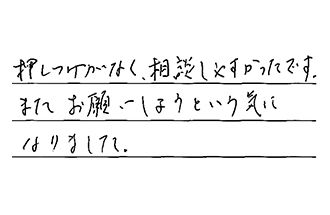 押しつけがなく、相談しやすかったです。
またお願いしようという気に
なりました。